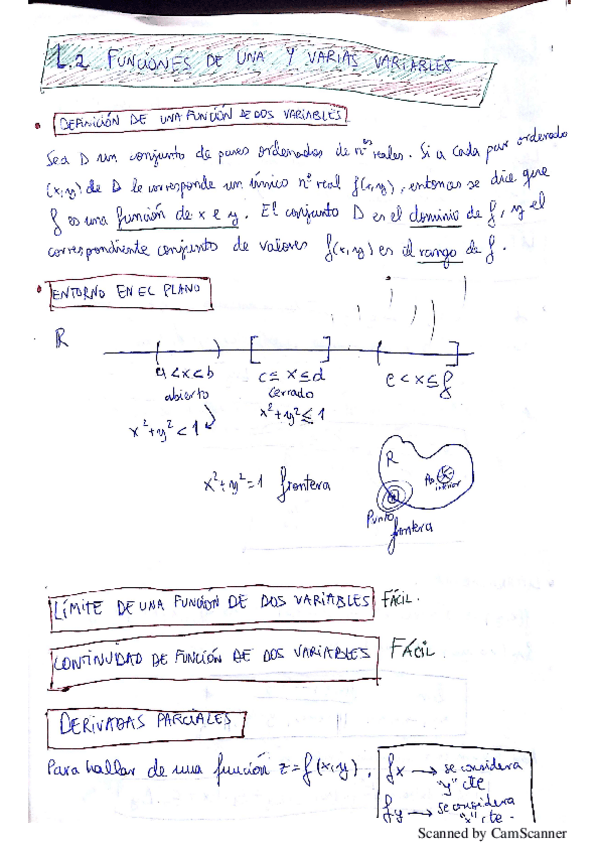 1.2 FUNCIONES DE UNA Y VARIAS VARIABLES
• DEFINICIÓN DE UNA FUNCIÓN DE DOS VARIABLES
Sea D un conjunto de pares ordenados de nos reales. Si a cada par ordenado
(x,y) de D le corresponde un único nº real f(x,y), entonces se dice que
f es una función de x e y. El conjunto D es el dominio de f, y el
correspondiente conjunto de valores f(x,y) es el rango de f.
• ENTORNO EN EL PLANO
R
a < x < b
abierto
x²+y² < 1
c ≤ x ≤ d
cerrado
x²+y² ≤ 1
e < x ≤ f
x²+y²=1 frontera
R
interior
Punto
frontera
LÍMITE DE UNA FUNCIÓN DE DOS VARIABLES FÁCIL.
CONTINUIDAD DE FUNCIÓN DE DOS VARIABLES FÁCIL.
DERIVADAS PARCIALES
Para hallar de una función z=f(x,y).
fx → se considera
"y" cte
fy → se considera
"x" cte.
Scanned by CamScanner